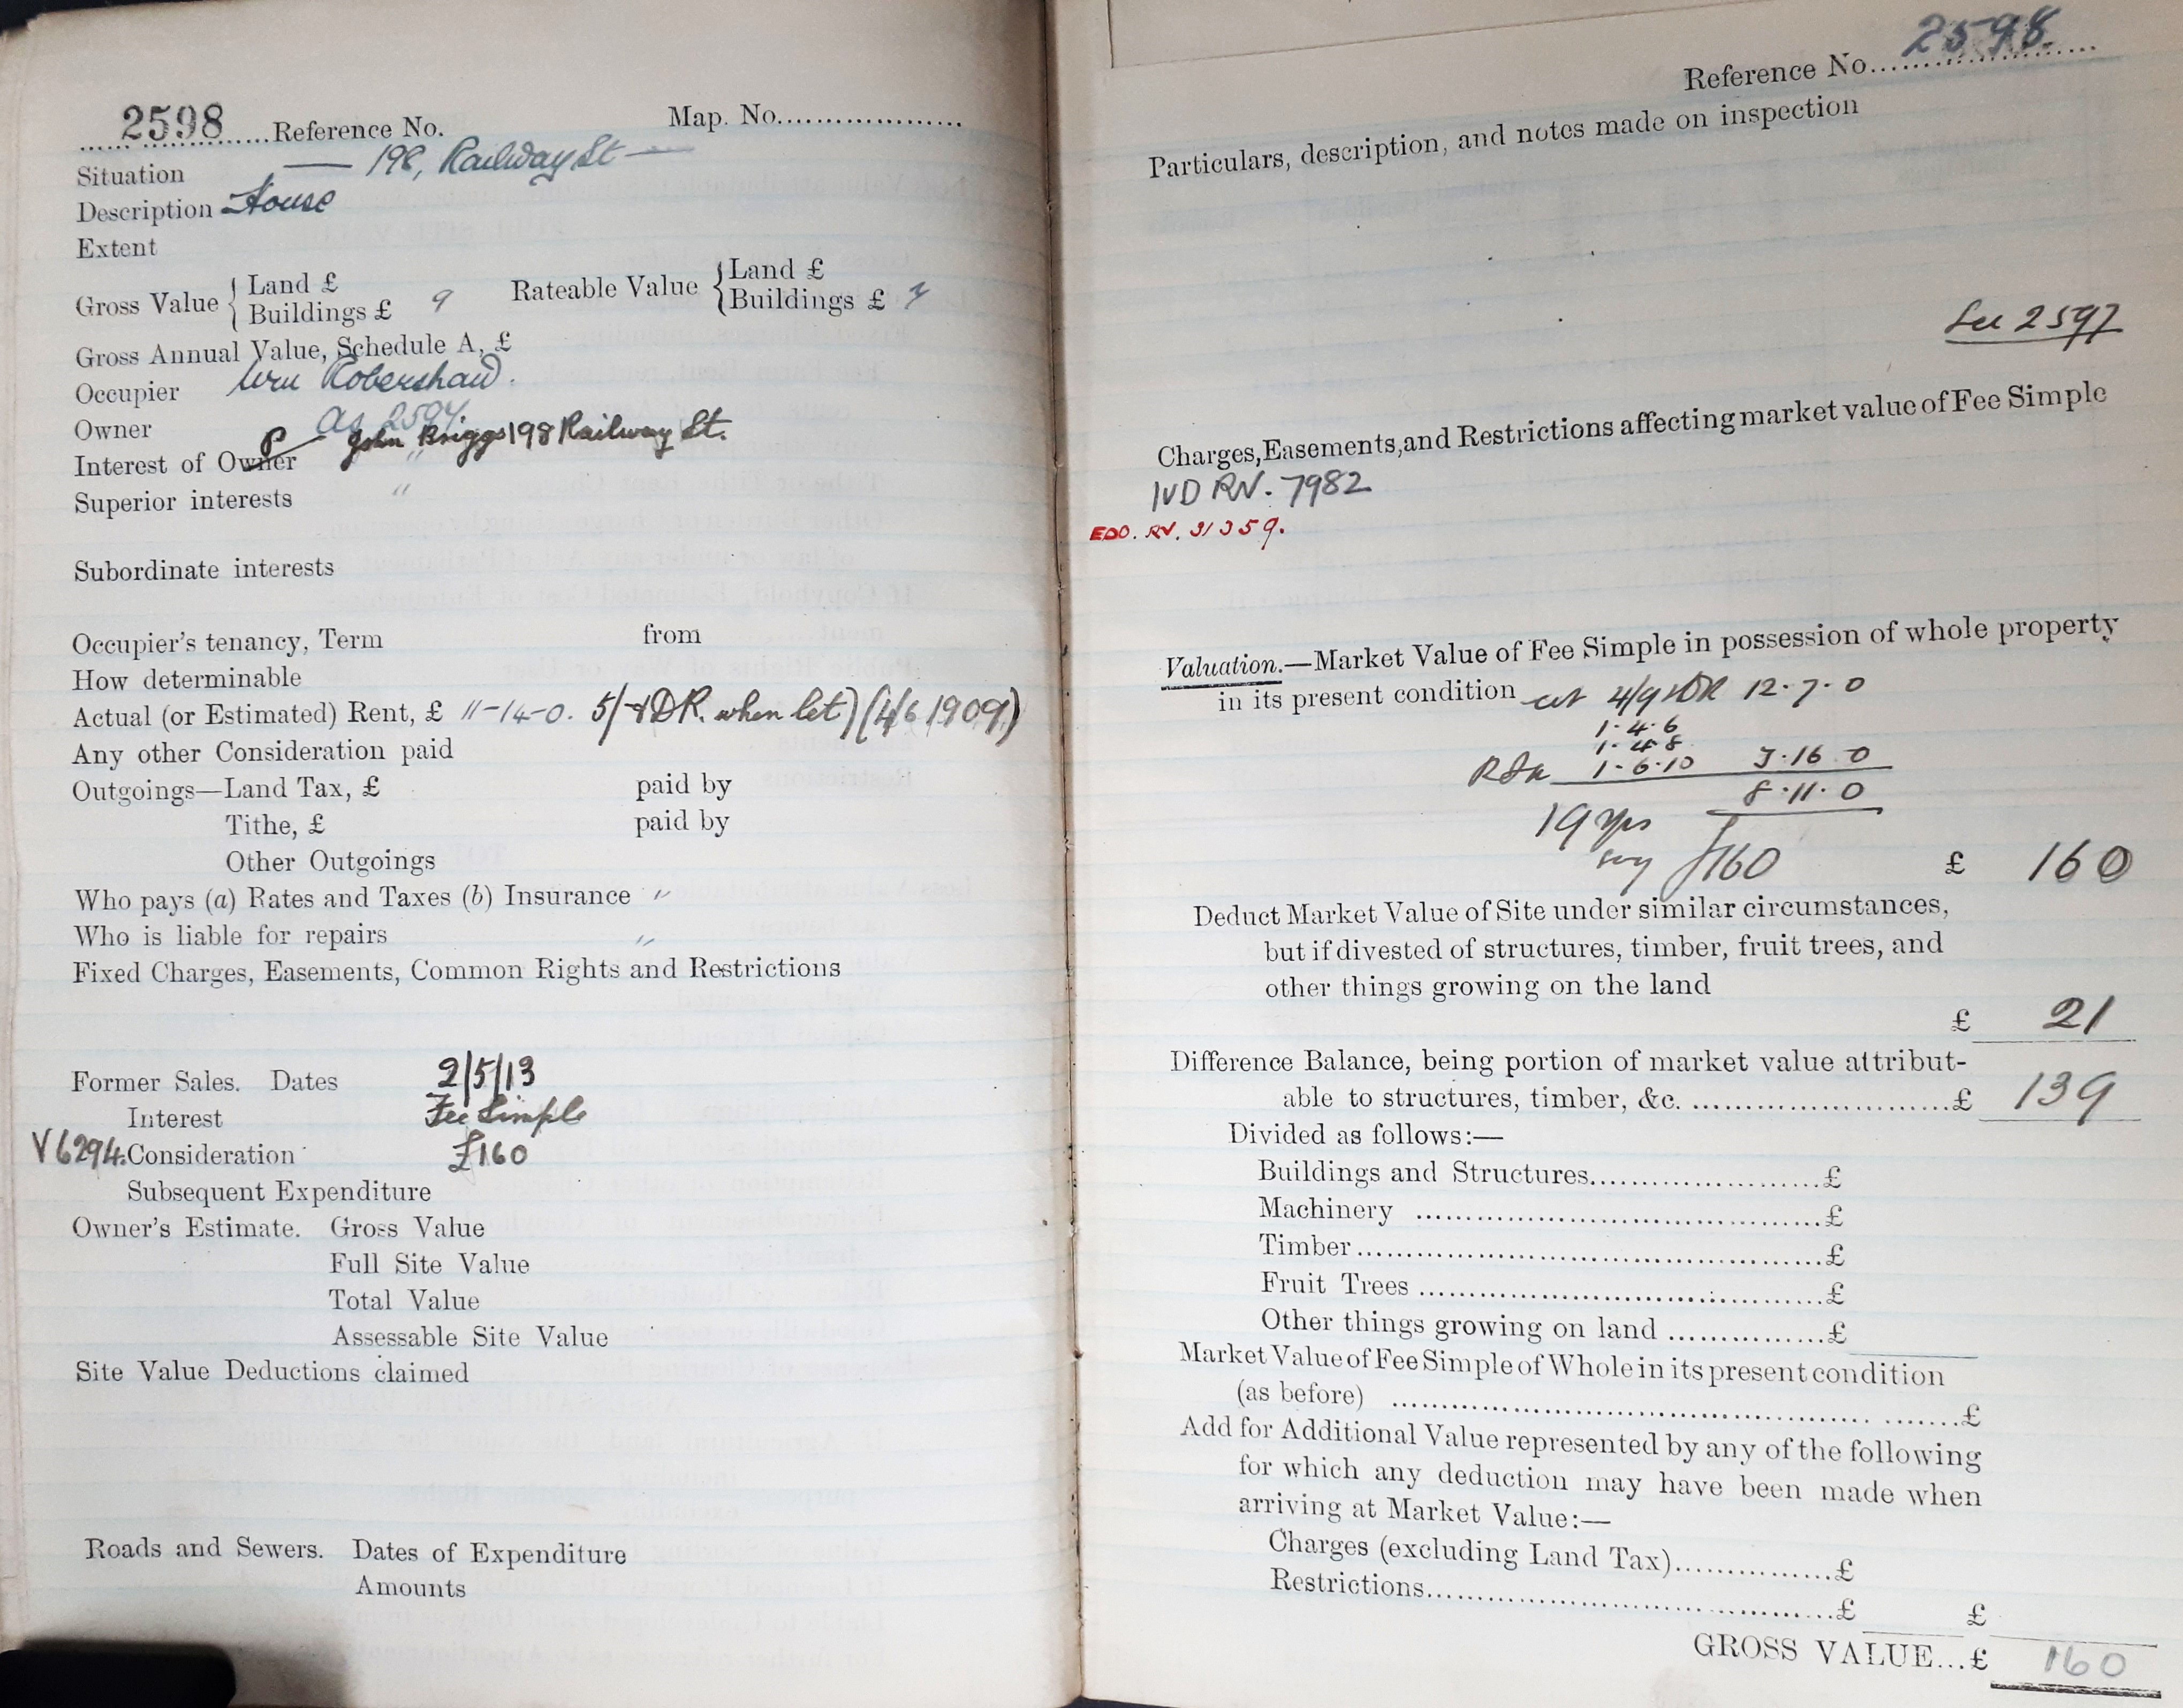 2598 Reference No. Map. No.
Situation — 198, Railway St —
Description House
Extent
Gross Value { Land £ Rateable Value { Land £
Buildings £ 9 Buildings £ 7
Gross Annual Value, Schedule A, £
Occupier Wm Robershaw.
Owner As 2594.
P John Briggs 198 Railway St.
Interest of Owner "
Superior interests "
Subordinate interests
Occupier's tenancy, Term from
How determinable
Actual (or Estimated) Rent, £ 11-14-0. 5/- & DR. when let) (4/6 1909)
Any other Consideration paid
Outgoings—Land Tax, £ paid by
Tithe, £ paid by
Other Outgoings
Who pays (a) Rates and Taxes (b) Insurance "
Who is liable for repairs "
Fixed Charges, Easements, Common Rights and Restrictions
Former Sales. Dates 2/5/13
Interest Fee Simple
V6294. Consideration £160
Subsequent Expenditure
Owner's Estimate. Gross Value
Full Site Value
Total Value
Assessable Site Value
Site Value Deductions claimed
Roads and Sewers. Dates of Expenditure
Amounts
Reference No. 2598.
Particulars, description, and notes made on inspection
See 2597
Charges, Easements, and Restrictions affecting market value of Fee Simple
IVD RN. 7982
EDD. RV. 31359.
Valuation.—Market Value of Fee Simple in possession of whole property
in its present condition at 4/9 & DR 12.7.0
1.4.6
1.4.8
1.6.10 3.16.0
8.11.0
19 yrs
say £160 £ 160
Deduct Market Value of Site under similar circumstances,
but if divested of structures, timber, fruit trees, and
other things growing on the land
£ 21
Difference Balance, being portion of market value attribut-
able to structures, timber, &c. £ 139
Divided as follows:—
Buildings and Structures £
Machinery £
Timber £
Fruit Trees £
Other things growing on land £
Market Value of Fee Simple of Whole in its present condition
(as before) £
Add for Additional Value represented by any of the following
for which any deduction may have been made when
arriving at Market Value:—
Charges (excluding Land Tax) £
Restrictions £ £
GROSS VALUE... £ 160